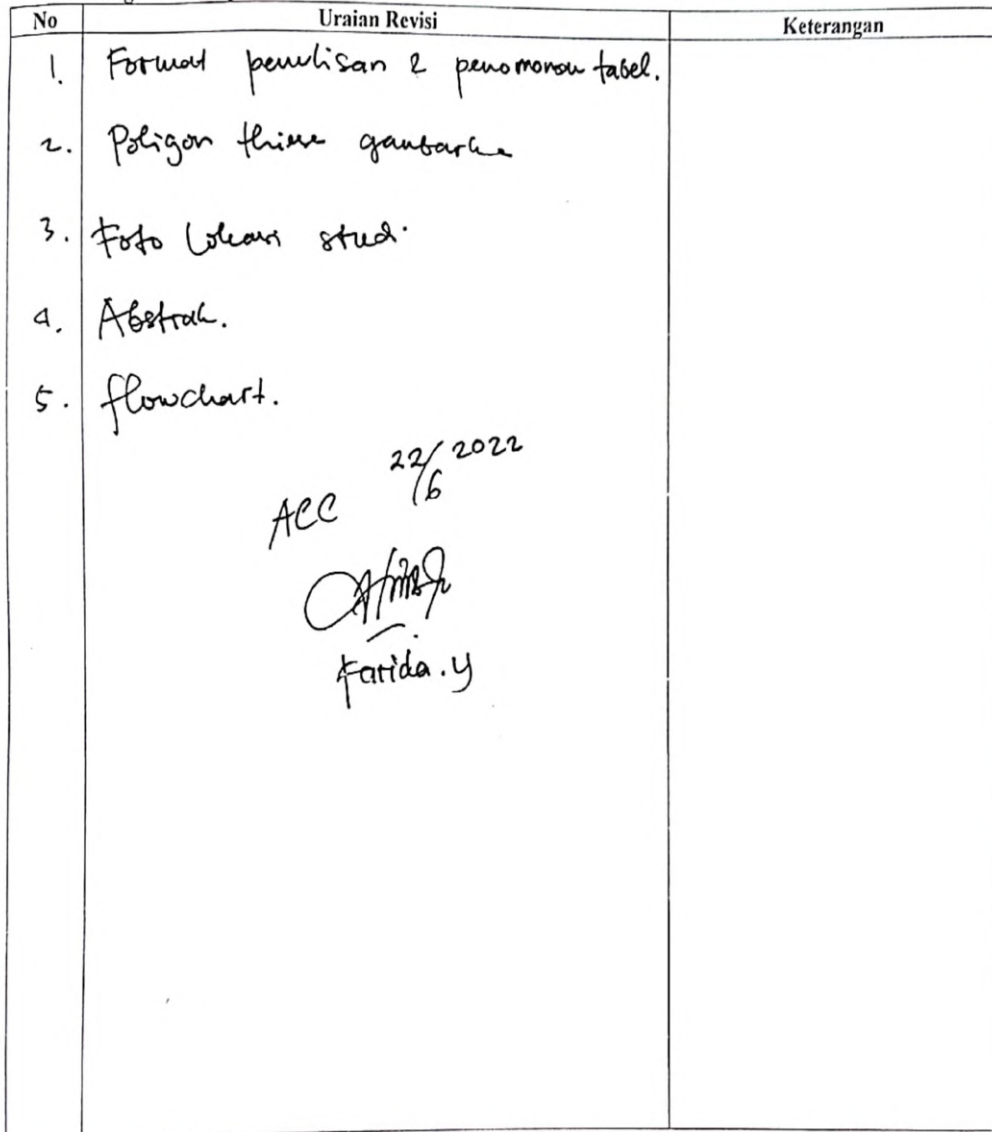 No Uraian Revisi Keterangan
1. Format penulisan & penomoran tabel.
2. Poligon gambarkan
3. Foto Lokasi studi.
4. Abstrak.
5. flowchart.
22/6 2022
ACC
Farida.y